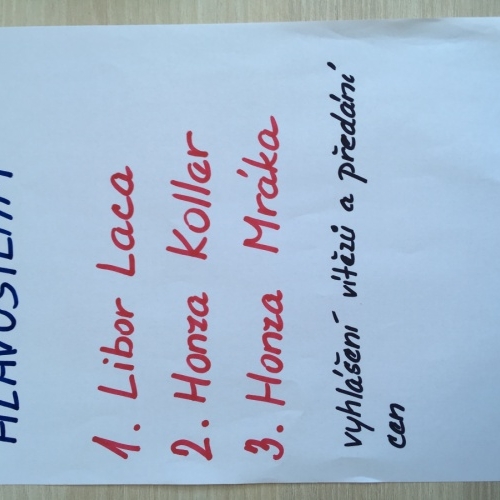 1. Libor Laca
2. Honza Koller
3. Honza Mráka
vyhlášení vítězů a předání
cen